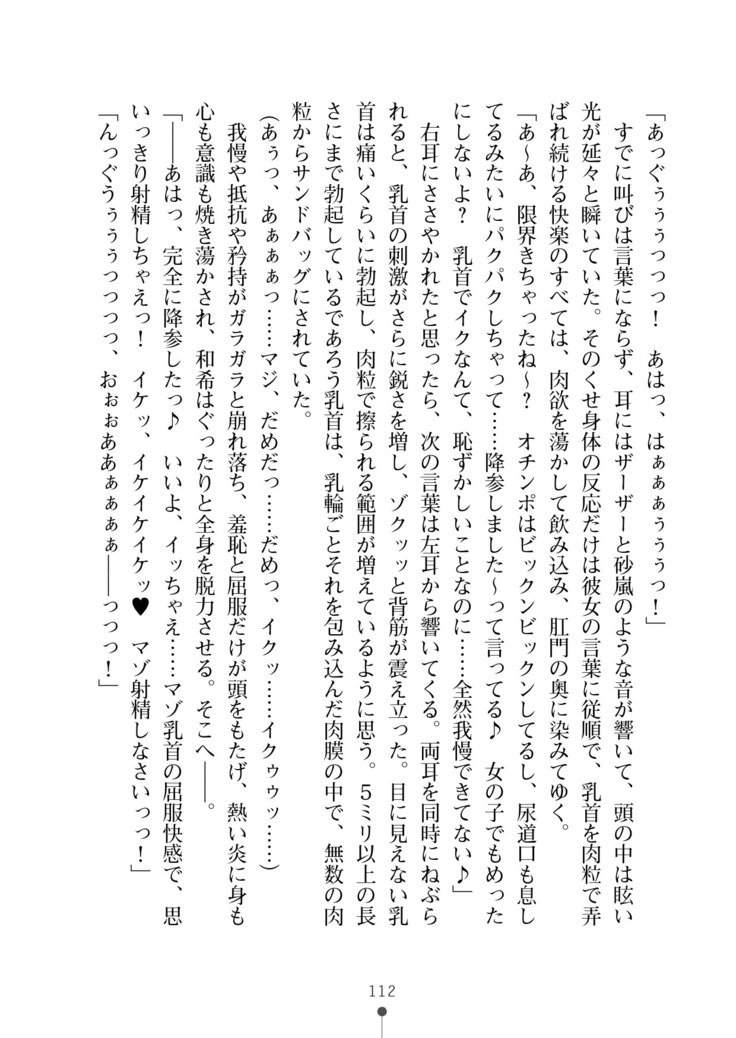 「あっぐぅぅぅつつつっ！　あはっ、はぁぁぁぅぅぅっ！」
　すでに叫びは言葉にならず、耳にはザーザーと砂嵐のような音が響いて、頭の中は眩い
光が延々と瞬いていた。そのくせ身体の反応だけは彼女の言葉に従順で、乳首を肉粒で弄
ばれ続ける快楽のすべては、肉欲を蕩かして飲み込み、肛門の奥に染みてゆく。
「あ〜あ、限界きちゃったね〜？　オチンポはビックンビックンしてるし、尿道口も息し
てるみたいにパクパクしちゃって……降参しました〜って言ってる♪　女の子でもめった
にしないよ？　乳首でイクなんて、恥ずかしいことなのに……全然我慢できてない♪」
　右耳にささやかれたと思ったら、次の言葉は左耳から響いてくる。両耳を同時にねぶら
れると、乳首の刺激がさらに鋭さを増し、ゾクッッと背筋が震え立った。目に見えない乳
首は痛いくらいに勃起し、肉粒で擦られる範囲が増えているように思う。５ミリ以上の長
さにまで勃起しているであろう乳首は、乳輪ごとそれを包み込んだ肉膜の中で、無数の肉
粒からサンドバッグにされていた。
（あぅっ、あぁぁぁっ……マジ、だめだっ……だめっ、イクッ……イクゥゥッ……）
　我慢や抵抗や矜持がガラガラと崩れ落ち、羞恥と屈服だけが頭をもたげ、熱い炎に身も
心も意識も焼き蕩かされ、和希はぐったりと全身を脱力させる。そこへ――。
「――あはっ、完全に降参したっ♪　いいよ、イッちゃえ……マゾ乳首の屈服快感で、思
いっきり射精しちゃえっ！　イケッ、イケイケイケッ♥　マゾ射精しなさいっっ！」
「んっぐうぅぅぅっつつつっ、おぉぉああぁぁぁぁ――っつつっ！」
112